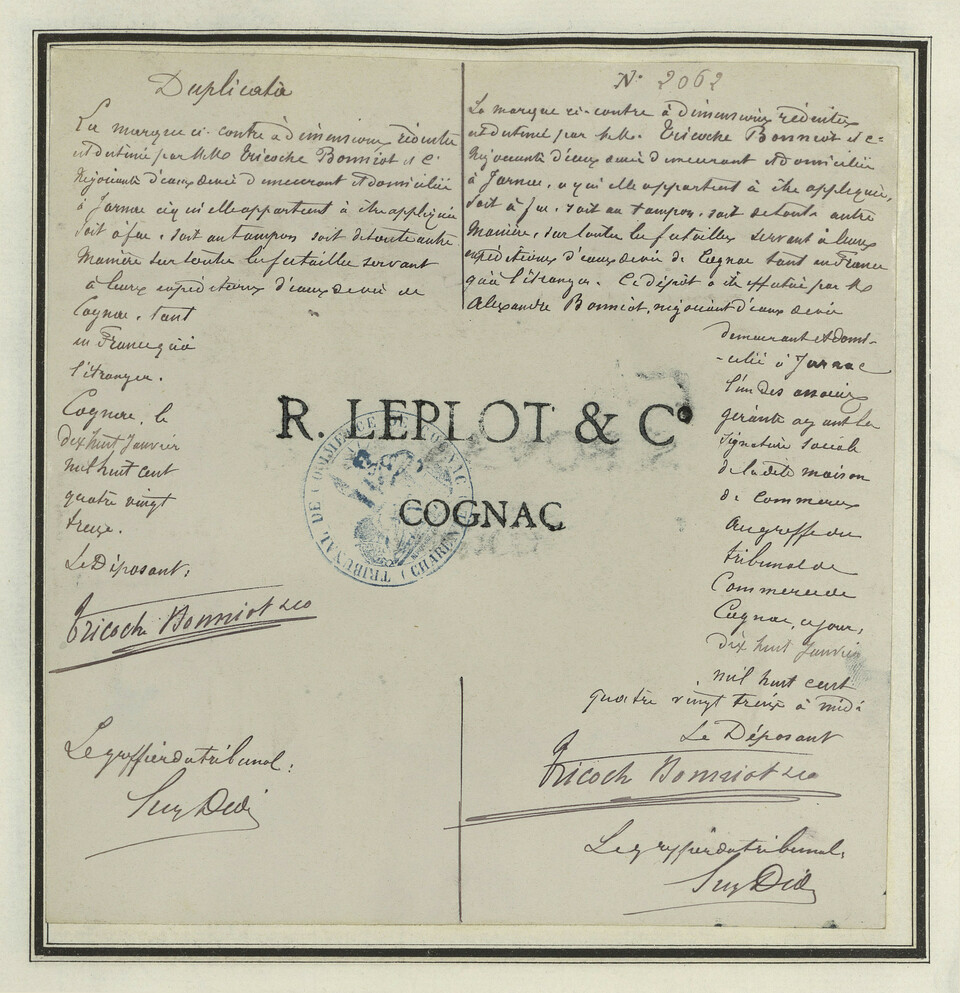 Duplicata
La marque ci-contre à dimensions réduites
est destinée par MM Tricoche Bonniot et Cie
Négociants d'eaux de vie demeurant et domiciliés
à Jarnac à qui elle appartient à être appliquée
soit à feu, soit au tampon soit de toute autre
Manière sur toutes les futailles servant
à leurs expéditions d'eaux de vie de
Cognac, tant
en France qu'à
l'étranger.
Cognac, le
dix huit Janvier
mil huit cent
quatre vingt
treize.
Le Déposant,
Tricoche Bonniot & Co
Le greffier du tribunal:
N° 2062
La marque ci-contre à dimensions réduites
est destinée par MM. Tricoche Bonniot et Cie
Négociants d'eaux de vie demeurant et domiciliés
à Jarnac, à qui elle appartient à être appliquée,
soit à feu, soit au tampon, soit de toute autre
Manière, sur toutes les futailles servant à leurs
expéditions d'eaux de vie de Cognac tant en France
qu'à l'étranger. Ce dépôt a été effectué par M
Alexandre Bonniot, négociant d'eaux de vie
demeurant et domi-
-cilié à Jarnac
l'un des associés
gérants ayant la
signature sociale
de la dite maison
de Commerce
au greffe du
tribunal de
Commerce de
Cognac, ce jour,
dix huit Janvier
mil huit cent
quatre vingt treize à midi
Le Déposant
Tricoche Bonniot & Co
Le greffier du tribunal:
R. LEPLOT & Co
COGNAC
TRIBUNAL DE COMMERCE DE COGNAC (CHARENTE)